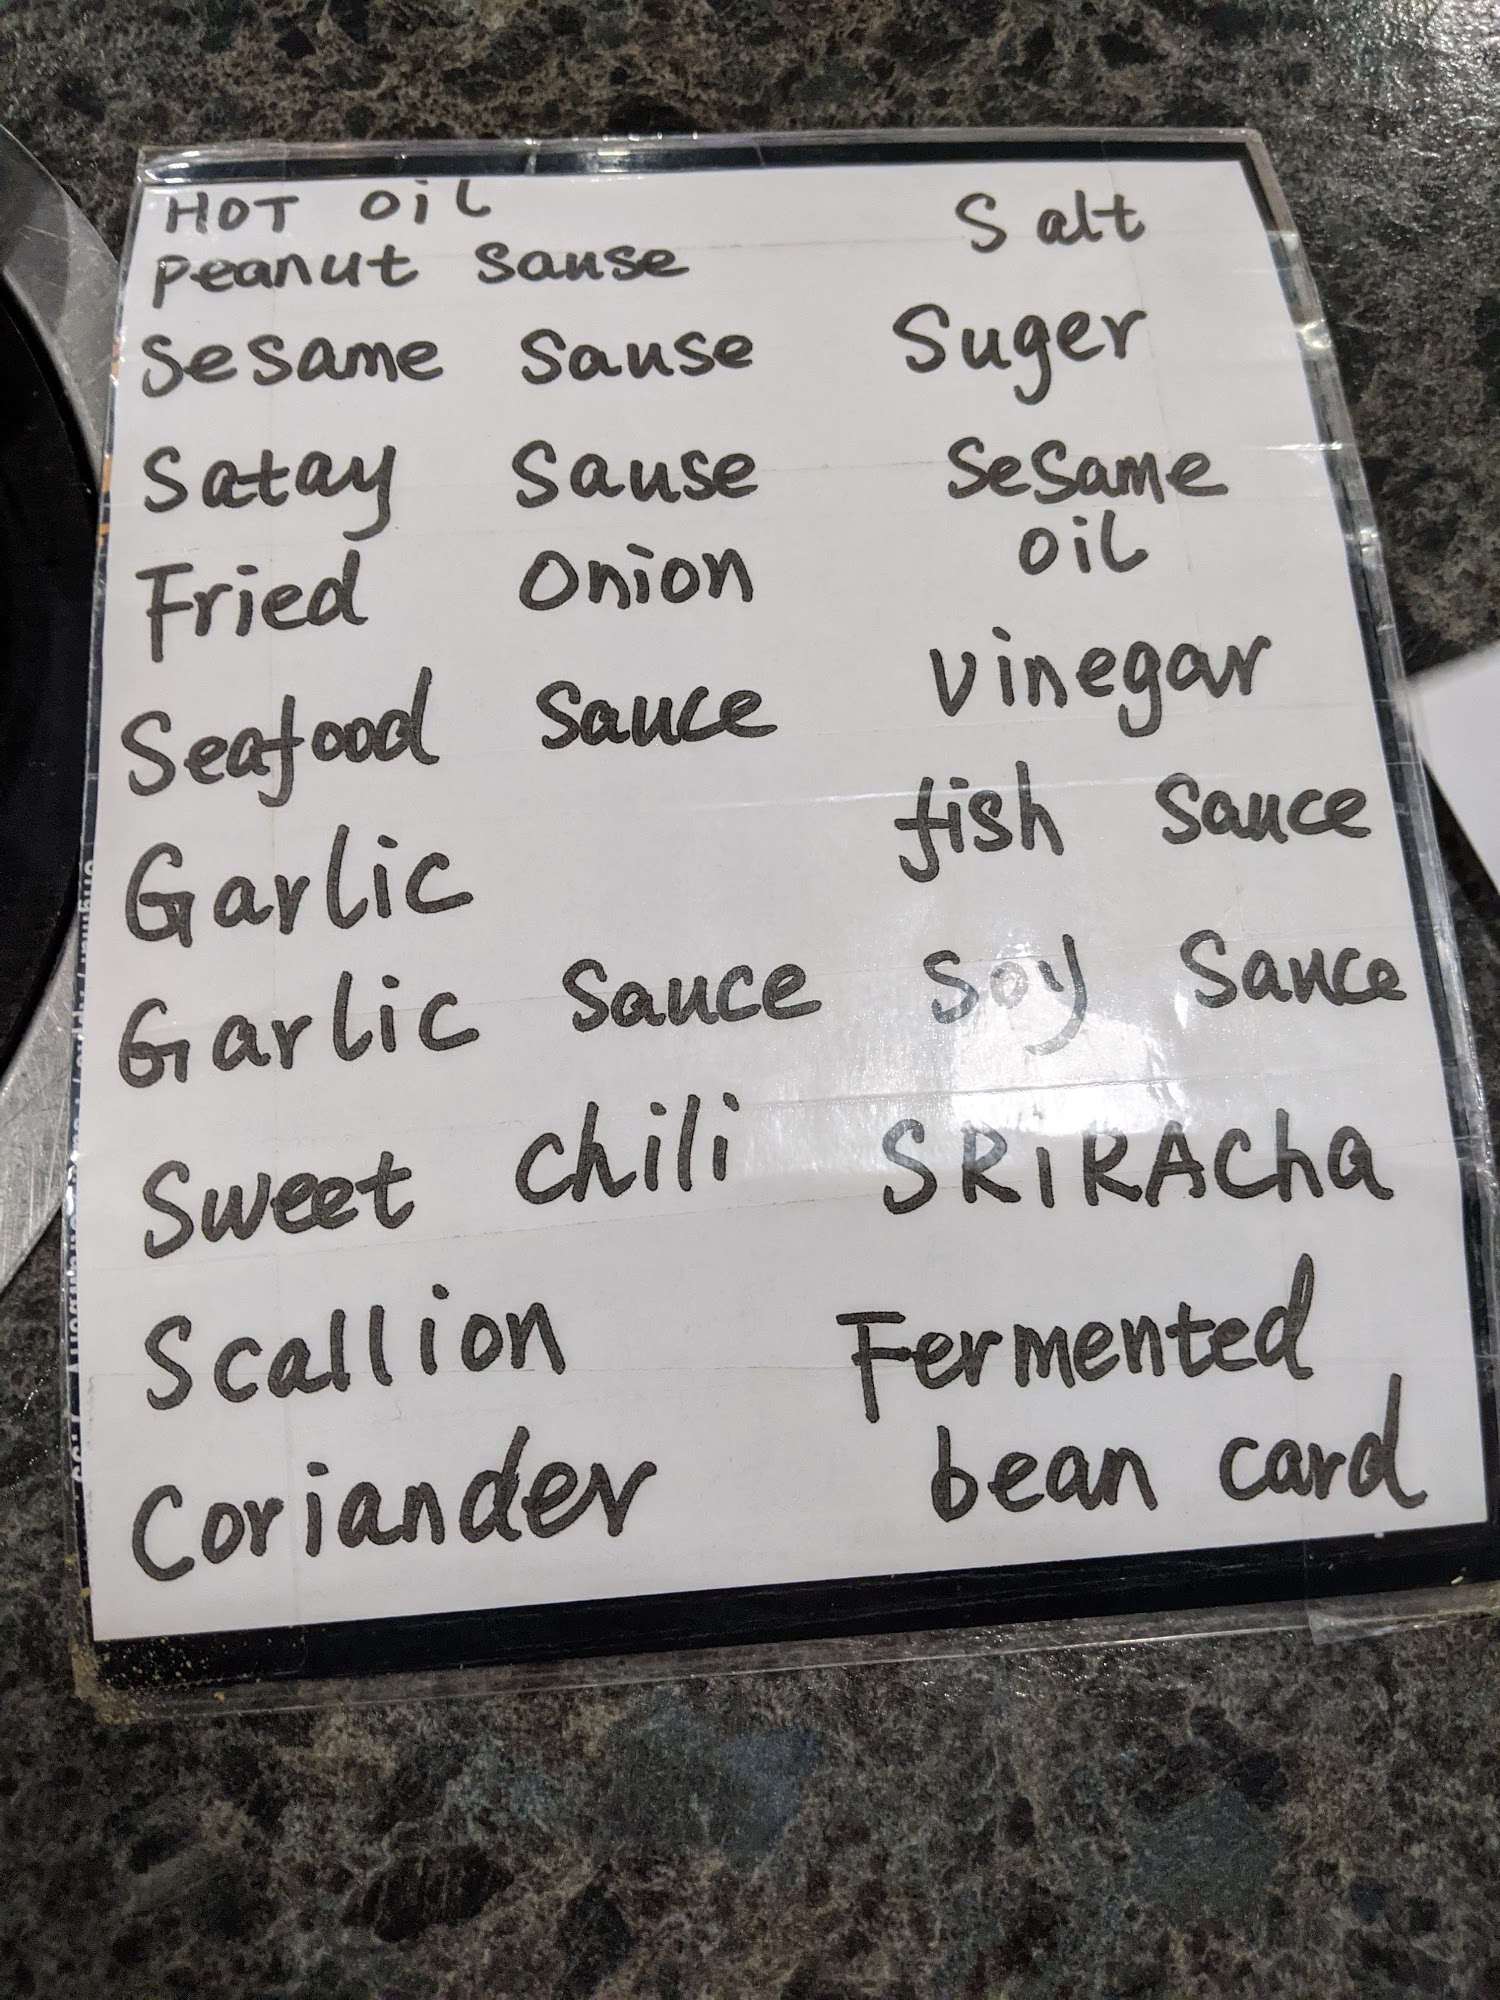 HOT oil
Peanut Sause
Sesame Sause
Satay Sause
Fried Onion
Seafood Sauce
Garlic
Garlic Sauce
Sweet chili
Scallion
Coriander
Salt
Suger
Sesame
oil
vinegar
fish Sauce
Soy Sauce
SRiRACha
Fermented
bean card